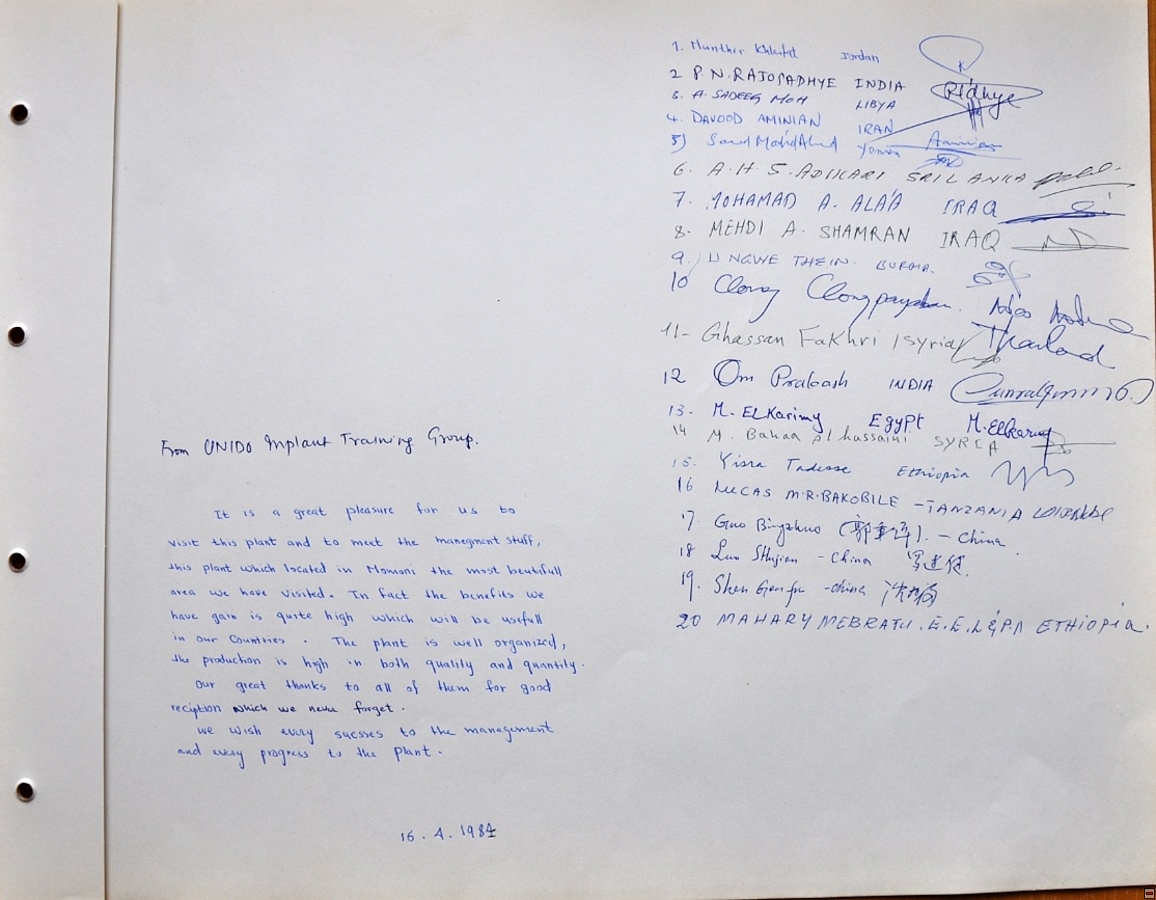 From UNIDO Inplant Training Group.
It is a great pleasure for us to
visit this plant and to meet the manegment stuff,
this plant which located in Momoni the most beutifull
area we have visited. In fact the benefits we
have gain is quite high which will be usefull
in our Countries. The plant is well organized,
the production is high in both quality and quantity.
Our great thanks to all of them for good
reciption which we never forget.
we wish every sucsses to the management
and every progress to the plant.
16.4.1984
1. Munthir Jordan
2 P.N. RAJOPADHYE INDIA
3. A. SADEEG MOH LIBYA
4. DAVOOD AMINIAN IRAN
5) Yemen
6. A.H.S. ADIKARI SRI LANKA
7. MOHAMAD A. ALA'A IRAQ
8. MEHDI A. SHAMRAN IRAQ
9. U NGWE THEIN. BURMA.
10 Thailand
11- Ghassan Fakhri / Syria
12 Om Prakash INDIA
13. M. ELKarimy Egypt M.Elkarimy
14 M. Bahaa Al hussaini SYRIA
15. Tadesse Ethiopia
16 LUCAS M.R. BAKOBILE - TANZANIA
17 Guo Bingzhuo - China
18 Luo Shujian - China
19. Shen Genfu - china
20 MAHARY MEBRATU. E.E.L&P.A ETHIOPIA.